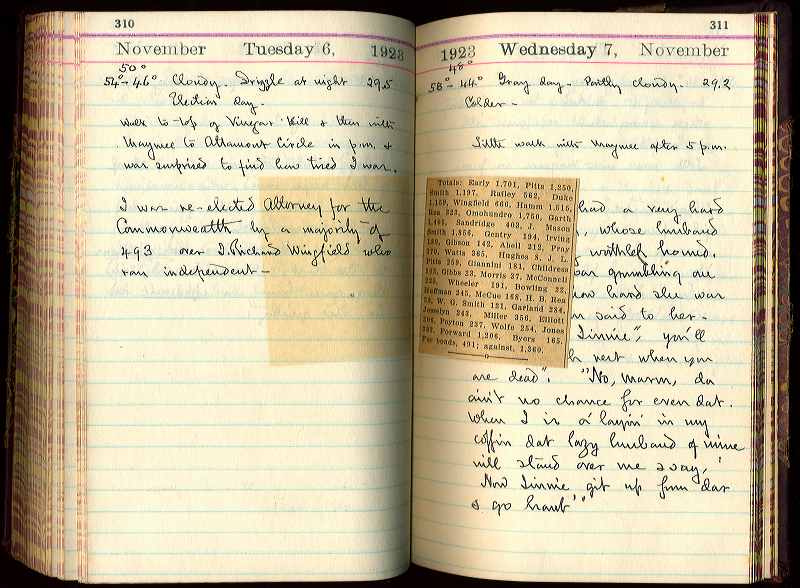 310
November Tuesday 6, 1923
50°
54°-46° Cloudy. Drizzle at night 29.5
Election Day.
Walk to top of Vinegar Hill & then with
Maymee to Altamont Circle in p.m. &
was surprised to find how tired I was.
I was re-elected Attorney for the
Commonwealth by a majority of
493 over J. Richard Wingfield who
ran independent—
311
1923 Wednesday 7, November
48°
58°-44° Gray day. Partly cloudy. 29.2
Colder—
Little walk with Maymee after 5 p.m.
Totals: Early 1,701, Pitts 1,250,
Smith 1,197, Railey 562, Duke
1,159, Wingfield 666, Hamm 1,515,
Rea 323, Omohundro 1,750, Garth
1,465, Sandridge 402, J. Mason
Smith 1,856, Gentry 194, Irving
189, Gibson 142, Abell 212, Fray
370, Watts 265, Hughes 8, J. L.
Pitts 259, Giannini 181, Childress
103, Gibbs 23, Morris 27, McConnell
225, Wheeler 191, Bowling 22,
Huffman 245, McCue 168, H. B. Rea
58, W. G. Smith 121, Garland 284,
Josselyn 243, Miller 256, Elliott
306, Peyton 237, Wolfe 254, Jones
292, Forward 1,206, Byers 165.
For bonds, 491; against, 1,260.
had a very hard
, whose husband
hound.
grumbling
how hard she was
said to her-
Linnie", you'll
rest when you
are dead". "No, marm, da
ain't no chance for even dat.
When I is a' layin' in my
coffin dat lazy husband of mine
will stand over me & say,'
Now Linnie git up from dar
& go